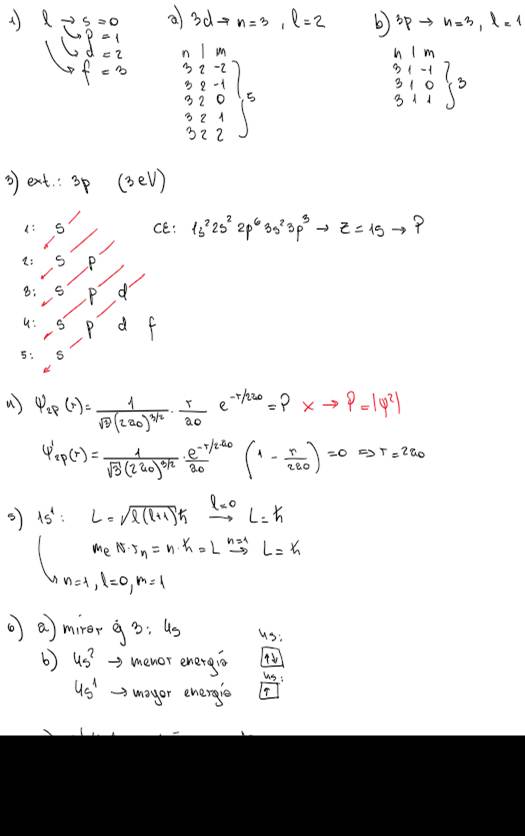 1) l → s = 0
p = 1
d = 2
f = 3
a) 3d → n=3 , l=2
n l m
3 2 -2
3 2 -1
3 2 0
3 2 1
3 2 2
5
b) 3p → n=3, l=1
n l m
3 1 -1
3 1 0
3 1 1
3
3) ext.: 3p (3eV)
1: s
2: s p
3: s p d
4: s p d f
5: s
CE: 1s² 2s² 2p⁶ 3s² 3p³ → Z = 15 → P
4) Ψ2p (r) = 1/(√3 (2a0)^3/2) · r/a0 e^-r/2a0 = P x → P = |Ψ²|
Ψ'2p(r) = 1/(√3 (2a0)^3/2) · e^-r/2a0/a0 (1 - r/2a0) = 0 ⇒ r = 2a0
5) 1s¹: L = √l(l+1) ħ l=0 → L = ħ
me v · rn = n · ħ = L n=1 → L = ħ
n=1, l=0, m=1
6) a) mirar ej 3: 4s
b) 4s² → menor energía 4s: ↑↓
4s¹ → mayor energía 4s: ↑